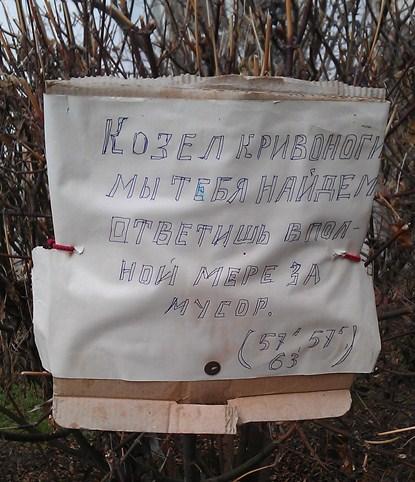 КОЗЕЛ КРИВОНОГИ
МЫ ТЕБЯ НАЙДЕМ
ОТВЕТИШЬ В ПОЛ-
НОЙ МЕРЕ ЗА
МУСОР.
(57а, 57б,
63)